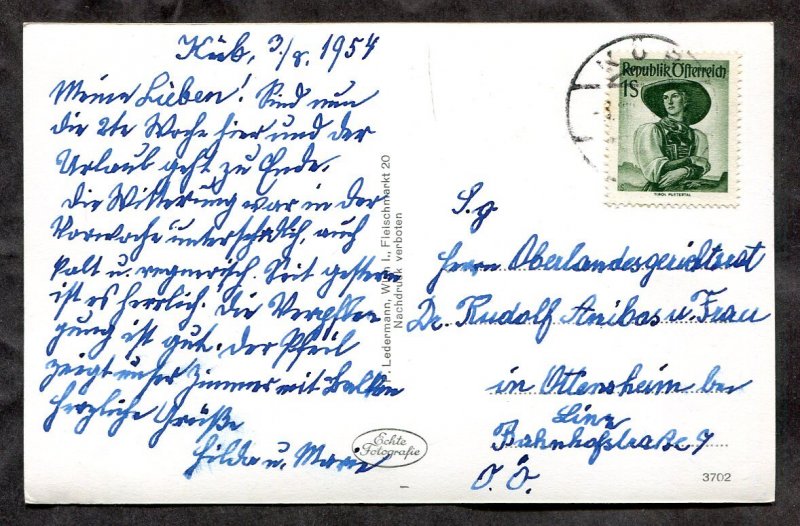 Küb, 3/8. 1954
Meine Lieben! Sind nun
die 2te Woche hier und der
Urlaub geht zu Ende.
Die Witterung war in der
Vorwoche unterschiedlich, auch
kalt u. regnerisch. Seit gestern
ist es herrlich. Die Verpfle
gung ist gut. Der Pfeil
zeigt unser Zimmer mit Balkon
Herzliche Grüße
Hilda u. Marie
Ledermann, Wien I., Fleischmarkt 20
Nachdruck verboten
Echte
Fotografie
Republik Österreich
1S
TIROL PUSTERTAL
S.g
Herrn Oberlandesgerichtsrat
Dr. Rudolf Anibas u. Frau
in Ottensheim bei
Linz
Bahnhofstraße 7
O.Ö.
3702